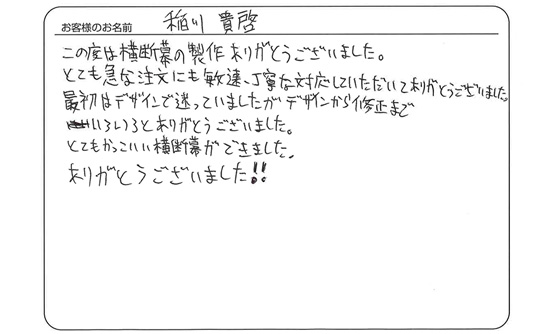 お客様のお名前 稲川 貴啓
この度は横断幕の製作ありがとうございました。
とても急な注文にも敏速、丁寧な対応していただいてありがとうございました。
最初はデザインで迷っていましたがデザインから修正まで
いろいろとありがとうございました。
とてもかっこいい横断幕ができました。
ありがとうございました!!